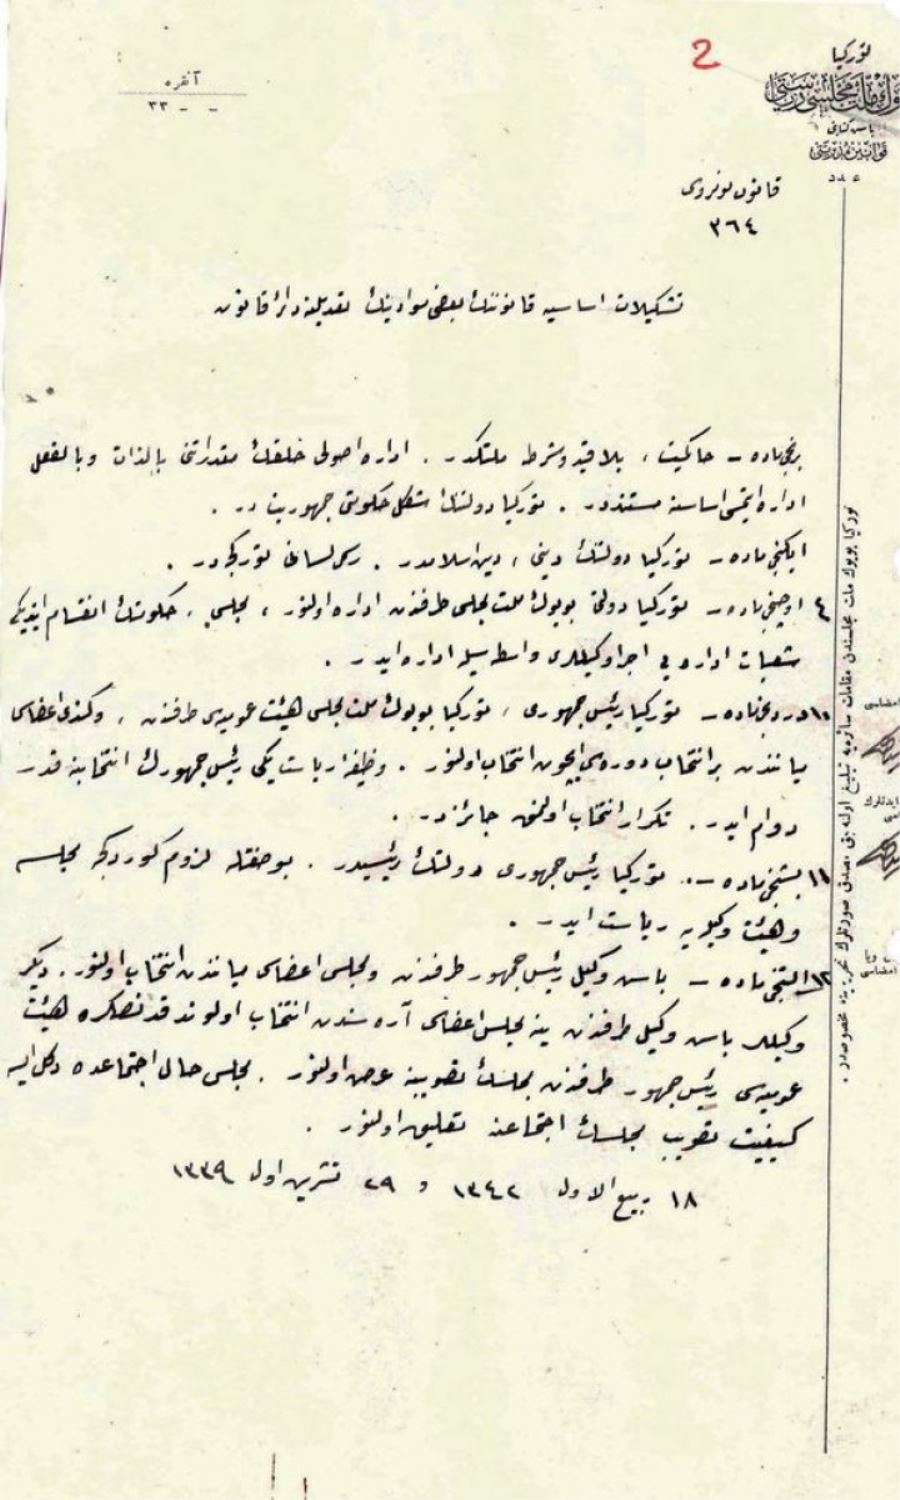 2
تورکیا
بویوك ملت مجلسی ریاستی
باش کتابتی
قوانین مدیریتی
عدد
آنقره
- - ٣٣
قانون نومروسی
٣٦٤
تشکیلات اساسیه قانوننك بعضی موادینك تعدیلنه دائر قانون
برنجی ماده – حاکمیت، بلا قید و شرط ملتكدر . اداره اصولی خلقك مقدراتنی بالذات و بالفعل
اداره ایتمسی اساسنه مستنددر . تورکیا دولتنك شکل حکومتی جمهوریت در .
ایکنجی ماده – تورکیا دولتنك دینی، دین اسلامدر . رسمی لسانی تورکجه در .
٤ اوچنجی ماده – تورکیا دولتی بویوك ملت مجلسی طرفندن اداره اولنور ، مجلس ، حکومتك انقسام ایتدیکی
شعبات اداره یی اجرا وکیللری واسطه سیله اداره ایدر .
١٠ دردنجی ماده – تورکیا رئیس جمهوری ، تورکیا بویوك ملت مجلسی هیئت عمومیه سی طرفندن ، و کندی اعضاسی
میانندن بر انتخاب دوره سی ایچون انتخاب اولنور . وظیفه ریاست یکی رئیس جمهورك انتخابنه قدر
دوام ایدر . تکرار انتخاب اولنمق جائزدر .
١١ بشنجی ماده – تورکیا رئیس جمهوری دولتك رئیسیدر . بو صفتله لزوم کوردکجه مجلسه
و هیئت وکیله یه ریاست ایدر .
١٢ التنجی ماده – باش وکیل رئیس جمهور طرفندن و مجلس اعضاسی میانندن انتخاب اولنور . دیکر
وکیللر باش وکیل طرفندن ینه مجلس اعضاسی آره سندن انتخاب اولوندقدنصکره هیئت
عمومیه سی رئیس جمهور طرفندن مجلسك تصویبنه عرض اولنور . مجلس حال اجتماعده دکل ایسه
کیفیت تصویب مجلسك اجتماعنه تعلیق اولنور .
١٨ ربیع الاول ١٣٤٢ و ٢٩ تشرین اول ١٣٣٩
تورکیا بویوك ملت مجلسندن مقامات سائره یه تبلیغ اوله جق مصدق صورتلرك تحریرینه مخصوصدر .